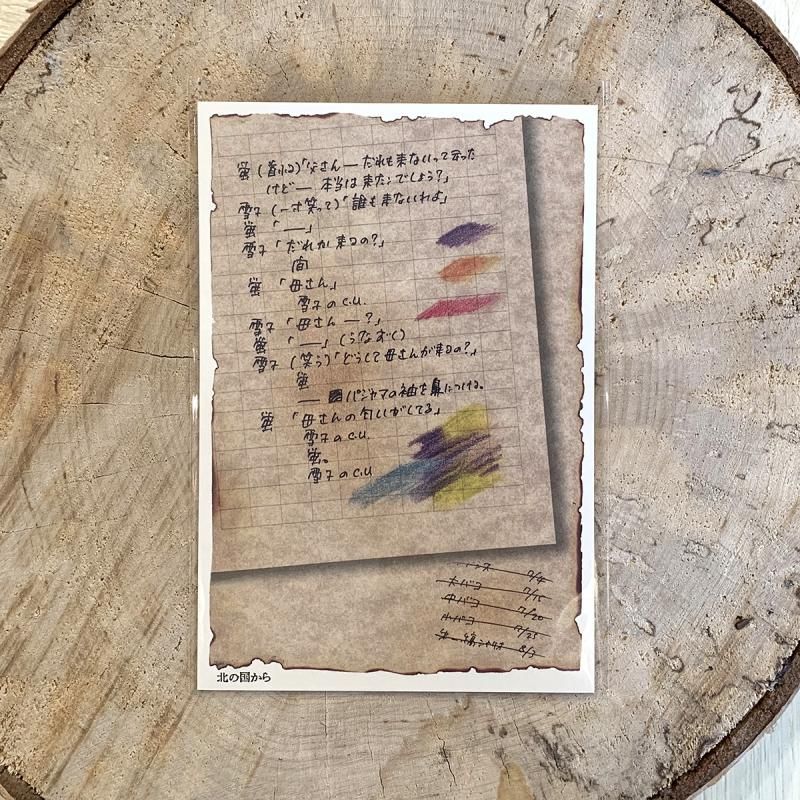 蛍 (首ふる)「父さん ― だれも来ないって云った
けど ― 本当は来たンでしょう?」
雪子 (一寸笑って)「誰も来ないわよ」
蛍 「 ― 」
雪子「だれか来るの?」
間
蛍 「母さん」
雪子のC.U.
雪子 「母さん ― ?」
蛍 「 ― 」(うなずく)
雪子 (笑う)「どうして母さんが来るの?」
蛍
― パジャマの袖を鼻につける。
蛍 「母さんの匂いがしてる」
雪子のC.U.
蛍。
雪子のC.U
7/4
大バコ 7/15
中バコ 7/20
小バコ 7/25
8/3
北の国から